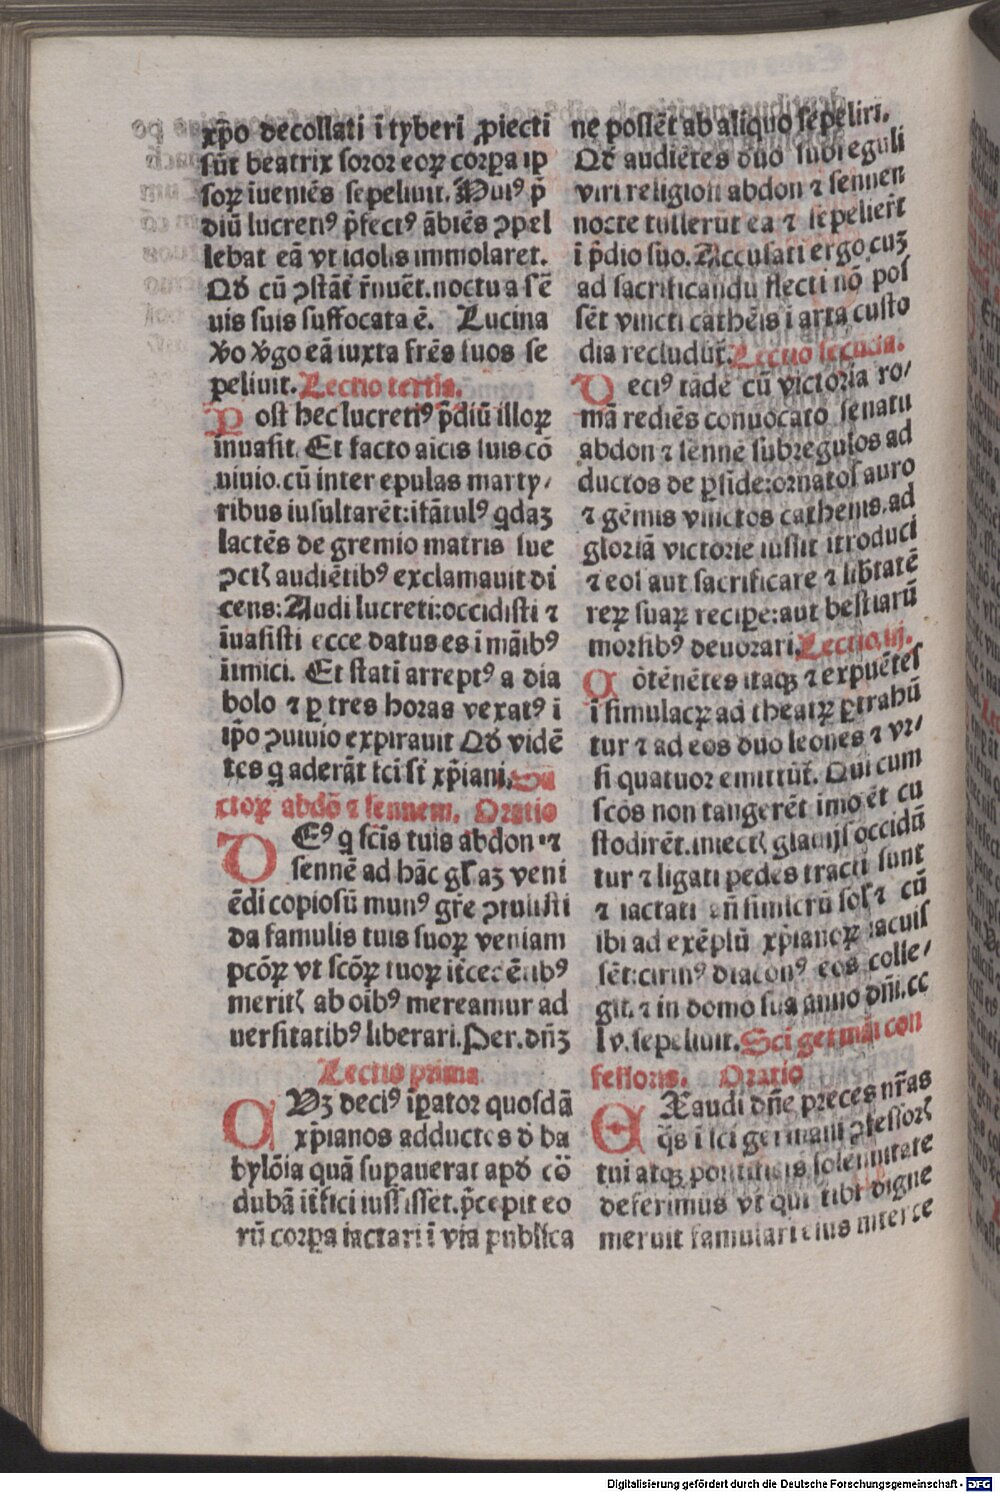 xp̄o decollati ī tyberi ꝓiecti
sūt beatrix soror eoꝝ corꝑa ip
soꝝ īueniēs sepeliuit. Huiꝰ p̄
diū lucretiꝰ p̄fectꝰ ābiēs ꝯpel
lebat eā vt idolis immolaret.
Qd̄ cū ꝯstāt̄ r̄nuēt. noctu a sē
uis suis suffocata ē. Lucina
v̄o v̄go eā iuxta frēs suos se
peliuit. Lectio tertia.
Post hec lucretiꝰ p̄diū illoꝝ
inuasit. Et facto aīcis suis cō
uiuio. cū inter epulas marty/
ribus iusultarēt: ifātulꝰ qdaʒ
lactēs de gremio matris sue
ꝯctꝭ audiētibꝰ exclamauit di
cens: Audi lucreti: occidisti ⁊
īuasisti ecce datus es ī māibꝰ
īimici. Et statī arreptꝰ a dia
bolo ⁊ ꝑ tres horas vexatꝰ ī
ip̄o ꝯuiuio expirauit Qd̄ vidē
tes q aderāt tc̄i st̄ xp̄iani. Sā
ctoꝝ abdō ⁊ sennem. Oratio
DEꝰ q sc̄is tuis abdon ⁊
sennē ad hāc gl̄aʒ veni
ēdi copiosū munꝰ gr̄e ꝯtulisti
da famulis tuis suoꝝ veniam
pcōꝝ vt scōꝝ tuoꝝ it̄cedētibꝰ
meritꝭ ab oībꝰ mereamur ad
uersitatibꝰ liberari. Per. dn̄ʒ
Lectio prima
CVʒ deciꝰ īꝑator quosdā
xp̄ianos adductes d̄ ba
bylōia quā suꝑauerat apd̄ cō
dubā it̄fici iussisset. p̄cepit eo
rū corꝑa iactari ī via publica
ne possēt ab aliquo sepeliri.
Qd̄ audiētes duo subreguli
viri religiosi abdon ⁊ sennen
nocte tullerūt ea ⁊ sepelier̄t
ī p̄dio suo. Accusati ergo cuʒ
ad sacrificandū flecti nō pos
sēt vincti cathēis ī arta custo
dia recludūt̄. Lectio secūda.
Deciꝰ tādē cū victoria ro/
mā rediēs conuocato senatu
abdon ⁊ sennē subregulos ad
ductos de ꝑside: ornatos auro
⁊ gēmis vinctos cathenis. ad
gloriā victorie iussit ītroduci
⁊ eos aut sacrificare ⁊ libt̄atē
reꝝ suaꝝ reciꝑe: aut bestiarū
morsibꝰ deuorari. Lectio. iij.
Cōtēnētes itaqꝫ ⁊ expuētes
ī simulacꝝ ad theatꝝ ꝑtrahū
tur ⁊ ad eos duo leones ⁊ vr/
si quatuor emittūt̄. Qui cum
scōs non tangerēt imo et cu
stodirēt. intectꝭ gladijs occidū
tur ⁊ ligati pedes tracti sunt
⁊ iactati añ simlcrū sol̄ ⁊ cū
ibi ad exēplū xp̄ianoꝝ iacuis
sēt: cirinꝰ diaconꝰ eos colle/
git. ⁊ in domo sua anno dn̄i. cc
lv. sepeliuit. Sci germāi con
fessoris. Oratio
EXaudi dn̄e preces nr̄as
q̄s ī sci germani ꝯfessorꝭ
tui atqꝫ pontificis solennitate
deferimus vt qui tibi digne
meruit famulari eius interce
Digitalisierung gefördert durch die Deutsche Forschungsgemeinschaft - DFG